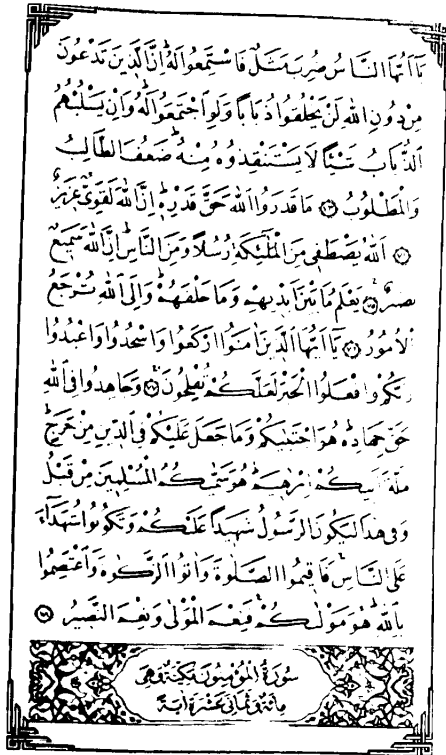 يَا اَيُّهَا النَّاسُ ضُرِبَ مَثَلٌ فَاسْتَمِعُوا لَهُ اِنَّ الَّذِينَ تَدْعُونَ
مِنْ دُونِ اللّٰهِ لَنْ يَخْلُقُوا ذُبَابًا وَلَوِ اجْتَمَعُوا لَهُ وَاِنْ يَسْلُبْهُمُ
الذُّبَابُ شَيْئًا لَا يَسْتَنْقِذُوهُ مِنْهُ ضَعُفَ الطَّالِبُ
وَالْمَطْلُوبُ ﴿٧٣﴾ مَا قَدَرُوا اللّٰهَ حَقَّ قَدْرِهِ اِنَّ اللّٰهَ لَقَوِيٌّ عَزِيزٌ
﴿٧٤﴾ اَللّٰهُ يَصْطَفِى مِنَ الْمَلٰئِكَةِ رُسُلًا وَمِنَ النَّاسِ اِنَّ اللّٰهَ سَمِيعٌ
بَصِيرٌ ﴿٧٥﴾ يَعْلَمُ مَا بَيْنَ اَيْدِيهِمْ وَمَا خَلْفَهُمْ وَاِلَى اللّٰهِ تُرْجَعُ
الْاُمُورُ ﴿٧٦﴾ يَا اَيُّهَا الَّذِينَ اٰمَنُوا ارْكَعُوا وَاسْجُدُوا وَاعْبُدُوا
رَبَّكُمْ وَافْعَلُوا الْخَيْرَ لَعَلَّكُمْ تُفْلِحُونَ ﴿٧٧﴾ وَجَاهِدُوا فِى اللّٰهِ
حَقَّ جِهَادِهِ هُوَ اجْتَبٰيكُمْ وَمَا جَعَلَ عَلَيْكُمْ فِى الدِّينِ مِنْ حَرَجٍ
مِلَّةَ اَبِيكُمْ اِبْرٰهِيمَ هُوَ سَمّٰيكُمُ الْمُسْلِمِينَ مِنْ قَبْلُ
وَفِى هٰذَا لِيَكُونَ الرَّسُولُ شَهِيدًا عَلَيْكُمْ وَتَكُونُوا شُهَدَاءَ
عَلَى النَّاسِ فَاَقِيمُوا الصَّلٰوةَ وَاٰتُوا الزَّكٰوةَ وَاعْتَصِمُوا
بِاللّٰهِ هُوَ مَوْلٰيكُمْ فَنِعْمَ الْمَوْلٰى وَنِعْمَ النَّصِيرُ ﴿٧٨﴾
سُورَةُ الْمُؤْمِنُونَ مَكِّيَّةٌ وَهِىَ
مِائَةٌ وَثَمَانِىَ عَشْرَةَ اٰيَةً